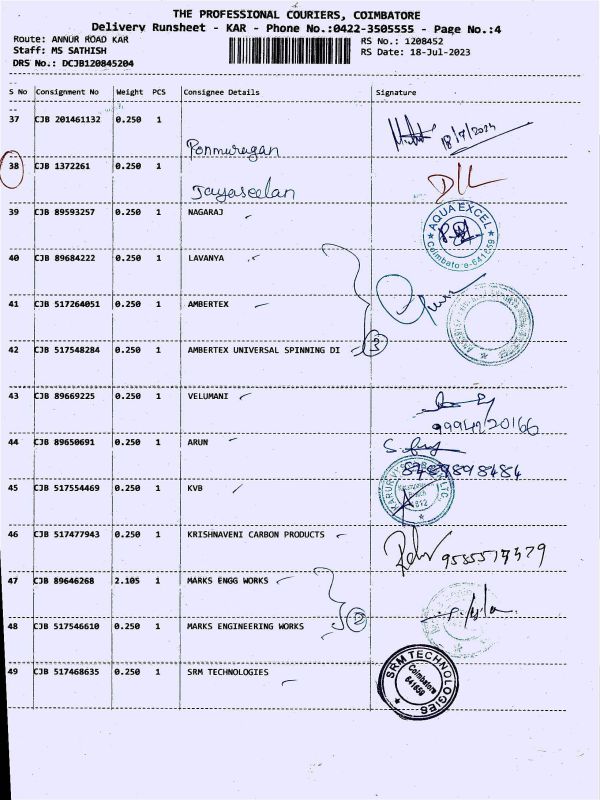 THE PROFESSIONAL COURIERS, COIMBATORE
Delivery Runsheet - KAR - Phone No.:0422-3505555 - Page No.:4
Route: ANNUR ROAD KAR RS No.: 1208452
Staff: MS SATHISH RS Date: 18-Jul-2023
DRS No.: DCJB120845204
S No Consignment No Weight PCS Consignee Details Signature
37 CJB 201461132 0.250 1
Ponmurugan 18/7/2024
38 CJB 1372261 0.250 1
Jayaseelan
39 CJB 89593257 0.250 1 NAGARAJ
AQUA EXCEL
Coimbatore-641659
40 CJB 89684222 0.250 1 LAVANYA
41 CJB 517264051 0.250 1 AMBERTEX
42 CJB 517548284 0.250 1 AMBERTEX UNIVERSAL SPINNING DI 3
43 CJB 89669225 0.250 1 VELUMANI
44 CJB 89650691 0.250 1 ARUN
8489898484
45 CJB 517554469 0.250 1 KVB
46 CJB 517477943 0.250 1 KRISHNAVENI CARBON PRODUCTS
47 CJB 89646268 2.105 1 MARKS ENGG WORKS
48 CJB 517546610 0.250 1 MARKS ENGINEERING WORKS 2
49 CJB 517468635 0.250 1 SRM TECHNOLOGIES
SRM TECHNOLOGIES
Coimbatore
641659